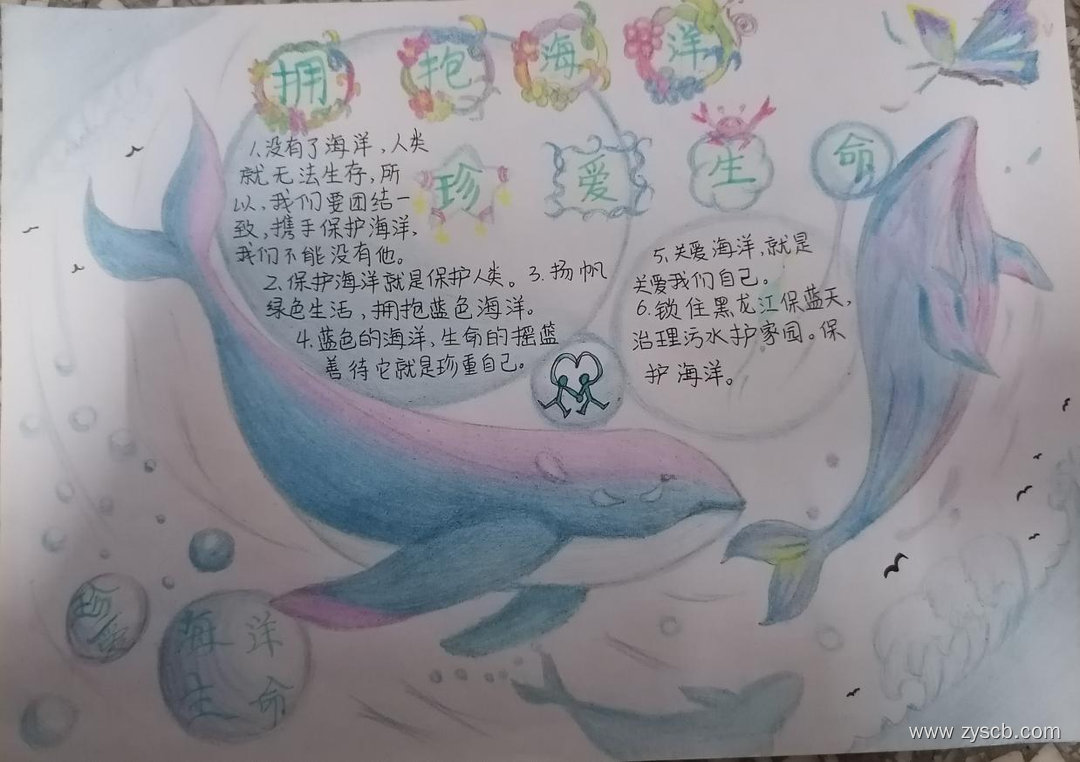 拥抱海洋
珍爱生命
1.没有了海洋,人类
就无法生存,所
以,我们要团结一
致,携手保护海洋,
我们不能没有他。
2.保护海洋就是保护人类。3.扬帆
绿色生活,拥抱蓝色海洋。
4.蓝色的海洋,生命的摇篮
善待它就是珍重自己。
5.关爱海洋,就是
关爱我们自己。
6.锁住黑龙江保蓝天,
治理污水护家园。保
护海洋。
珍
海洋
生命
www.zyscb.com